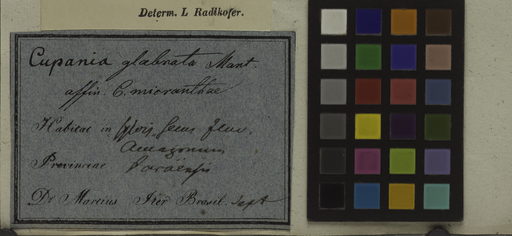 Determ. L Radlkofer.
Cupania glabrata Mart.
affin. C. micranthae
Habitat in sylvis secus fluv.
Amazonum
Provinciae Paraensis
Dr Martius Iter Brasil. Sept